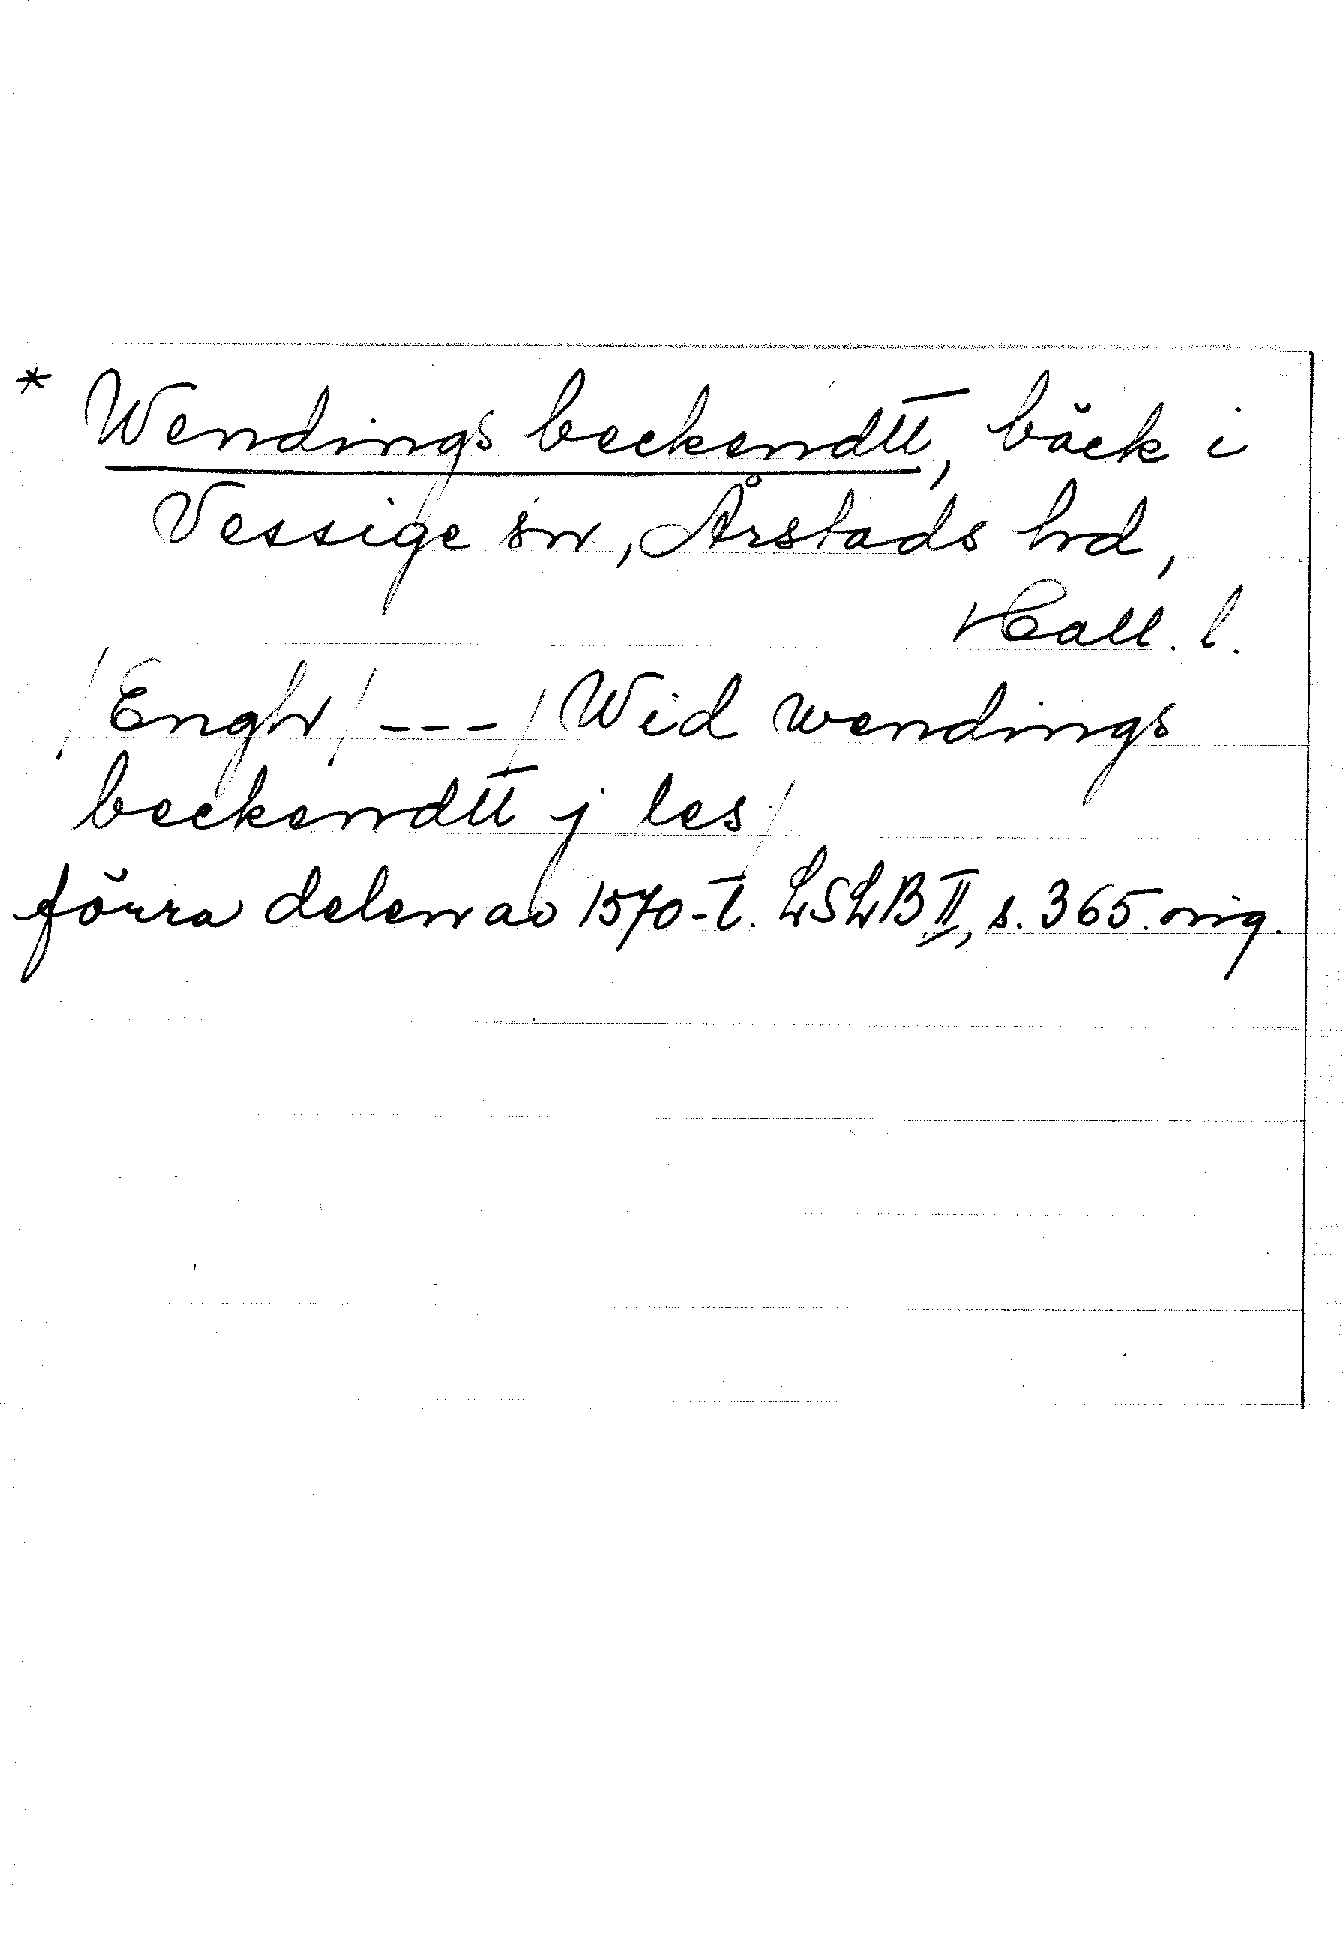 * Wendings beckendtt, bäck i
Vessige sn, Årstads hd,
Hall. l.
/Engh/ --- / Wid wendings
beckendtt j les /
förra delen av 1570-t. LSLB II, s. 365. orig.